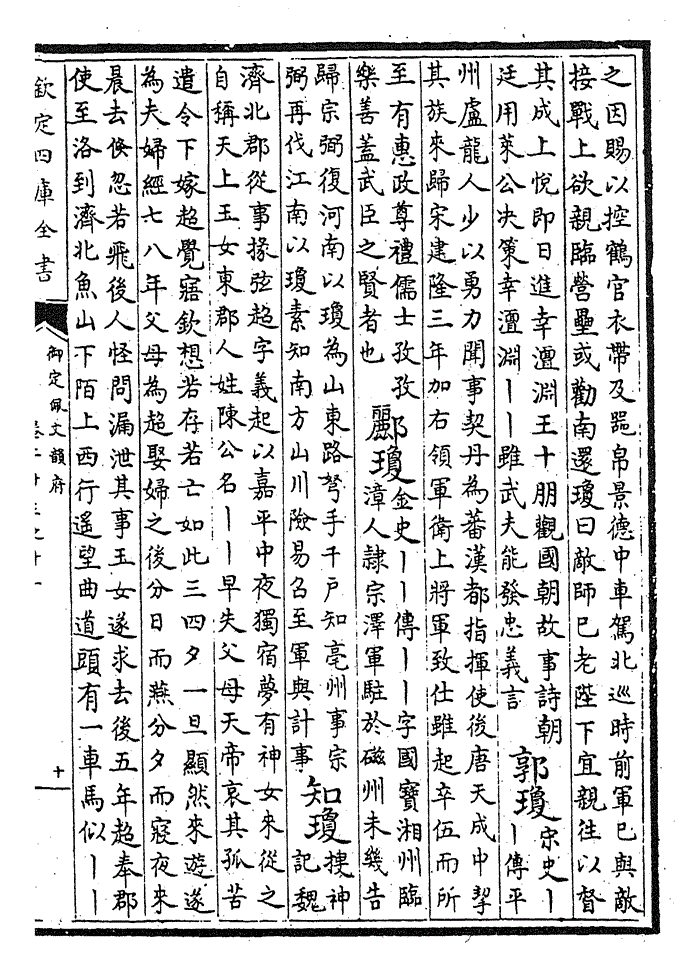 之因賜以控鶴官衣帶及器帛景德中車駕北巡時前軍已與敵
接戰上欲親臨營壘或勸南還瓊曰敵師已老陛下宜親往以督
其成上悅即日進幸澶淵王十朋觀國朝故事詩朝
廷用萊公決策幸澶淵丨丨雖武夫能發忠義言
郭瓊
宋史丨
丨傳平
州盧龍人少以勇力聞事契丹為蕃漢都指揮使後唐天成中挈
其族來歸宋建隆三年加右領軍衛上將軍致仕雖起卒伍而所
至有惠政尊禮儒士孜孜
樂善蓋武臣之賢者也
酈瓊
金史丨丨傳丨丨字國寶湘州臨
漳人隷宗澤軍駐於磁州未幾告
歸宗弼復河南以瓊為山東路弩手千戶知亳州事宗
弼再伐江南以瓊素知南方山川險易召至軍與計事
知瓊
搜神
記魏
濟北郡從事掾弦超字義起以嘉平中夜獨宿夢有神女來從之
自稱天上玉女東郡人姓陳公名丨丨早失父母天帝哀其孤苦
遣令下嫁超覺寤欽想若存若亡如此三四夕一旦顯然來遊遂
為夫婦經七八年父母為超娶婦之後分日而燕分夕而寢夜來
晨去倐忽若飛後人怪問漏泄其事玉女遂求去後五年超奉郡
使至洛到濟北魚山下陌上西行遙望曲道頭有一車馬似丨丨
欽定四庫全書
御定佩文韻府
十